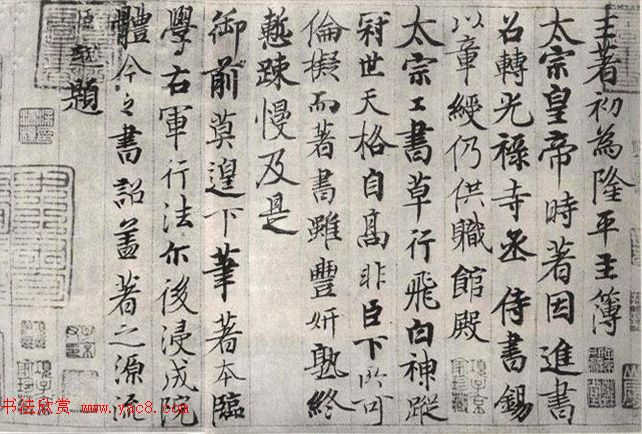 王著初為隆平主簿
太宗皇帝時著因進書
召轉光祿寺丞侍書錫
以章綬仍供職館殿
太宗工書草行飛白神蹤
冠世天格自高非臣下所可
倫擬而著書雖豐妍熟終
慙疎慢及是
御前莫遑下筆著本臨
學右軍行法尒後浸成院
體今之書詔盖著之源流
題
书法欣赏 www.yac8.com